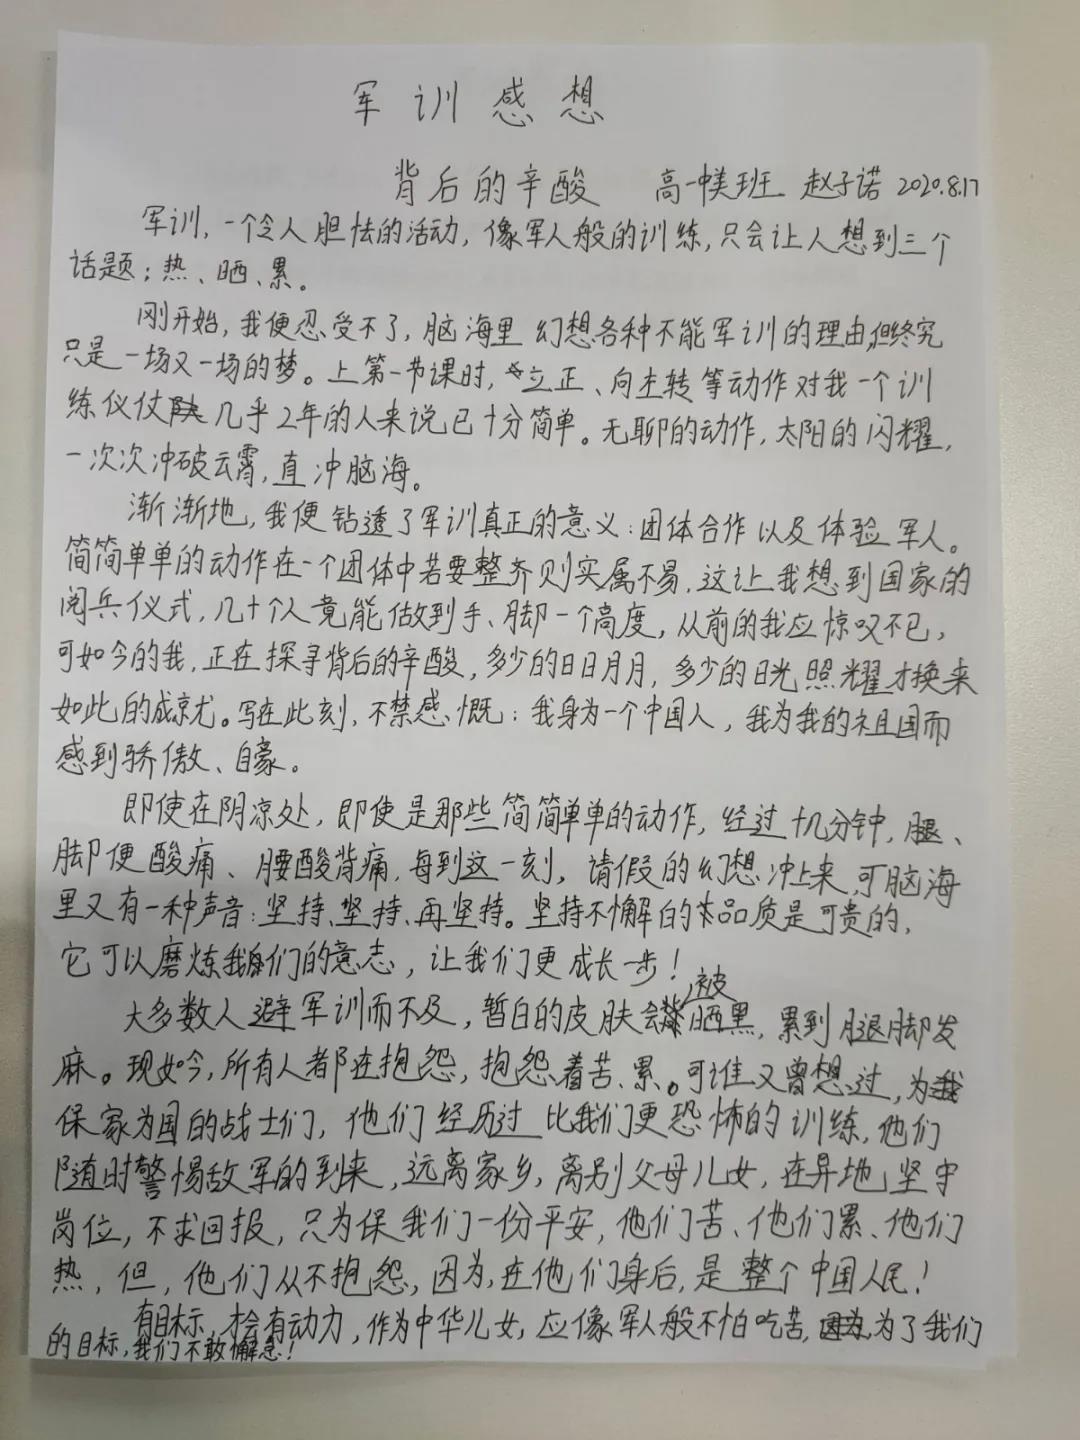 军训感想
背后的辛酸 高一中美班 赵子诺 2020.8.17
军训,一个令人胆怯的活动,像军人般的训练,只会让人想到三个
话题:热、晒、累。
刚开始,我便忍受不了,脑海里幻想各种不能军训的理由,但终究
只是一场又一场的梦。上第一节课时,立正、向左转等动作对我一个训
练仪仗队几乎2年的人来说已十分简单。无聊的动作,太阳的闪耀,
一次次冲破云霄,直冲脑海。
渐渐地,我便钻透了军训真正的意义:团体合作以及体验军人。
简简单单的动作在一个团体中若要整齐则实属不易,这让我想到国家的
阅兵仪式,几十个人竟能做到手、脚一个高度,从前的我应惊叹不已,
可如今的我,正在探寻背后的辛酸,多少的日日月月,多少的日光照耀才换来
如此的成就。写在此刻,不禁感慨:我身为一个中国人,我为我的祖国而
感到骄傲、自豪。
即使在阴凉处,即使是那些简简单单的动作,经过十几分钟,腿、
脚便酸痛、腰酸背痛,每到这一刻,请假的幻想冲上来,可脑海
里又有一种声音:坚持、坚持、再坚持。坚持不懈的品质是可贵的,
它可以磨炼我们的意志,让我们更成长一步!
大多数人避军训而不及,暂白的皮肤会被晒黑,累到腿脚发
麻。现如今,所有人都在抱怨,抱怨着苦、累。可谁又曾想过,为
保家为国的战士们,他们经历过比我们更恐怖的训练,他们
随时警惕敌军的到来,远离家乡,离别父母儿女,在异地坚守
岗位,不求回报,只为保我们一份平安,他们苦、他们累、他们
热,但,他们从不抱怨,因为,在他们身后,是整个中国人民!
有目标,才会有动力,作为中华儿女,应像军人般不怕吃苦,为了我们
的目标,我们不敢懈怠!